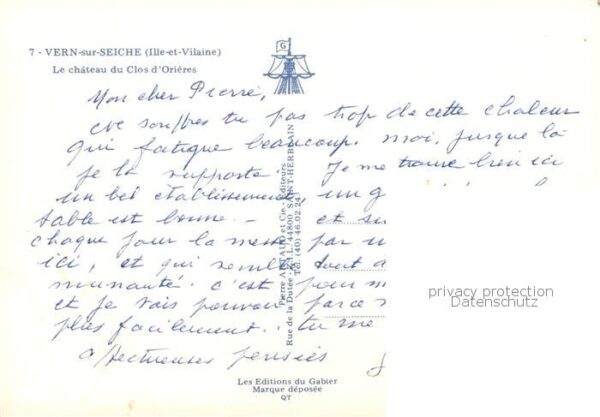 7 - VERN-sur-SEICHE (Ille-et-Vilaine)
Le château du Clos d'Orières
G
Mon cher Pierre,
souffres tu pas trop de cette chaleur
qui fatigue beaucoup. moi, jusque là
je la supporte. Je me trouve bien ici
un bel établissement un g
table est bonne. - et su
chaque jour la messe par u
ici, et qui semble tout a
munauté. c'est pour m
et je vais pouvoir parce
plus facilement. tu me
affectueuses pensées
Pierre ARTAUD et Cie - Éditeurs
Rue de la Dutée - Z.I.L. 44800 SAINT-HERBLAIN
Tél. (40) 46.02.24
privacy protection
Datenschutz
Les Editions du Gabier
Marque déposée
QT